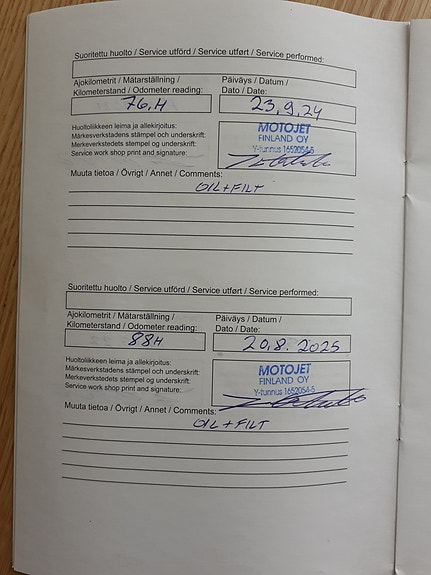 Suoritettu huolto / Service utförd / Service utført / Service performed:
Ajokilometrit / Mätarställning /
Kilometerstand / Odometer reading:
Päiväys / Datum /
Dato / Date:
76,H
23,9,24
Huoltoliikkeen leima ja allekirjoitus:
Märkesverkstadens stämpel och underskrift:
Merkeverkstedets stempel og underskrift:
Service work shop print and signature:
MOTOJET
FINLAND OY
Y-tunnus 1652054-5
Muuta tietoa / Övrigt / Annet / Comments:
OIL+FILT
Suoritettu huolto / Service utförd / Service utført / Service performed:
Ajokilometrit / Mätarställning /
Kilometerstand / Odometer reading:
Päiväys / Datum /
Dato / Date:
88H
20,8. 2025
Huoltoliikkeen leima ja allekirjoitus:
Märkesverkstadens stämpel och underskrift:
Merkeverkstedets stempel og underskrift:
Service work shop print and signature:
MOTOJET
FINLAND OY
Y-tunnus 1652054-5
Muuta tietoa / Övrigt / Annet / Comments:
OIL+FILT